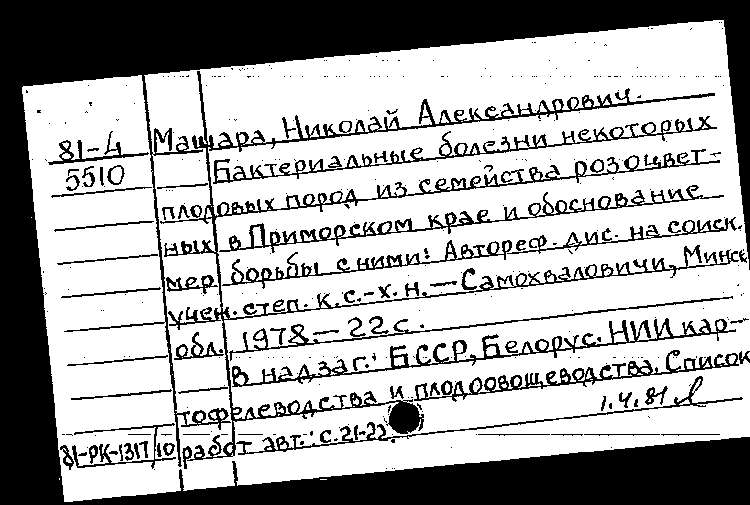 81-4 Машара, Николай Александрович.
5510 Бактериальные болезни некоторых
плодовых пород из семейства розоцвет-
ных в Приморском крае и обоснование
мер борьбы с ними: Автореф. дис. на соиск.
учен. степ. к. с.-х. н. — Самохваловичи, Минск.
обл., 1978. — 22 с.
В надзаг.: БССР, Белорус. НИИ кар-
тофелеводства и плодоовощеводства. Список
работ авт.: с. 21-22.
1.4.81
81-РК-1317/10